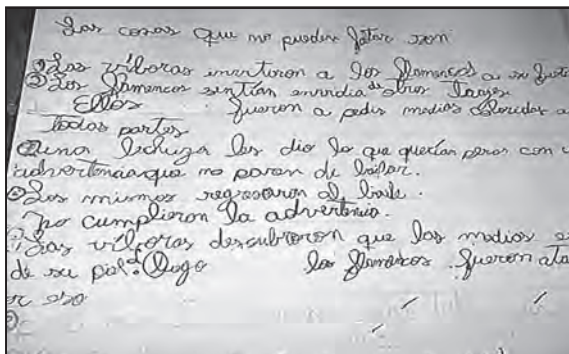 Las cosas que no pueden faltar son
① Las víboras invitaron a los flamencos a su
② Los flamencos sentían envidia de otros trajes
Ellos fueron a pedir medias coloridas a
todas partes
una lechuza les dio lo que querían peros con
advertencia que no paren de bailar.
Los mismos regresaron al baile.
No cumplieron la advertencia.
Las víboras descubroron que las medias
de su piel. luego los flamencos fueron ata
r eso